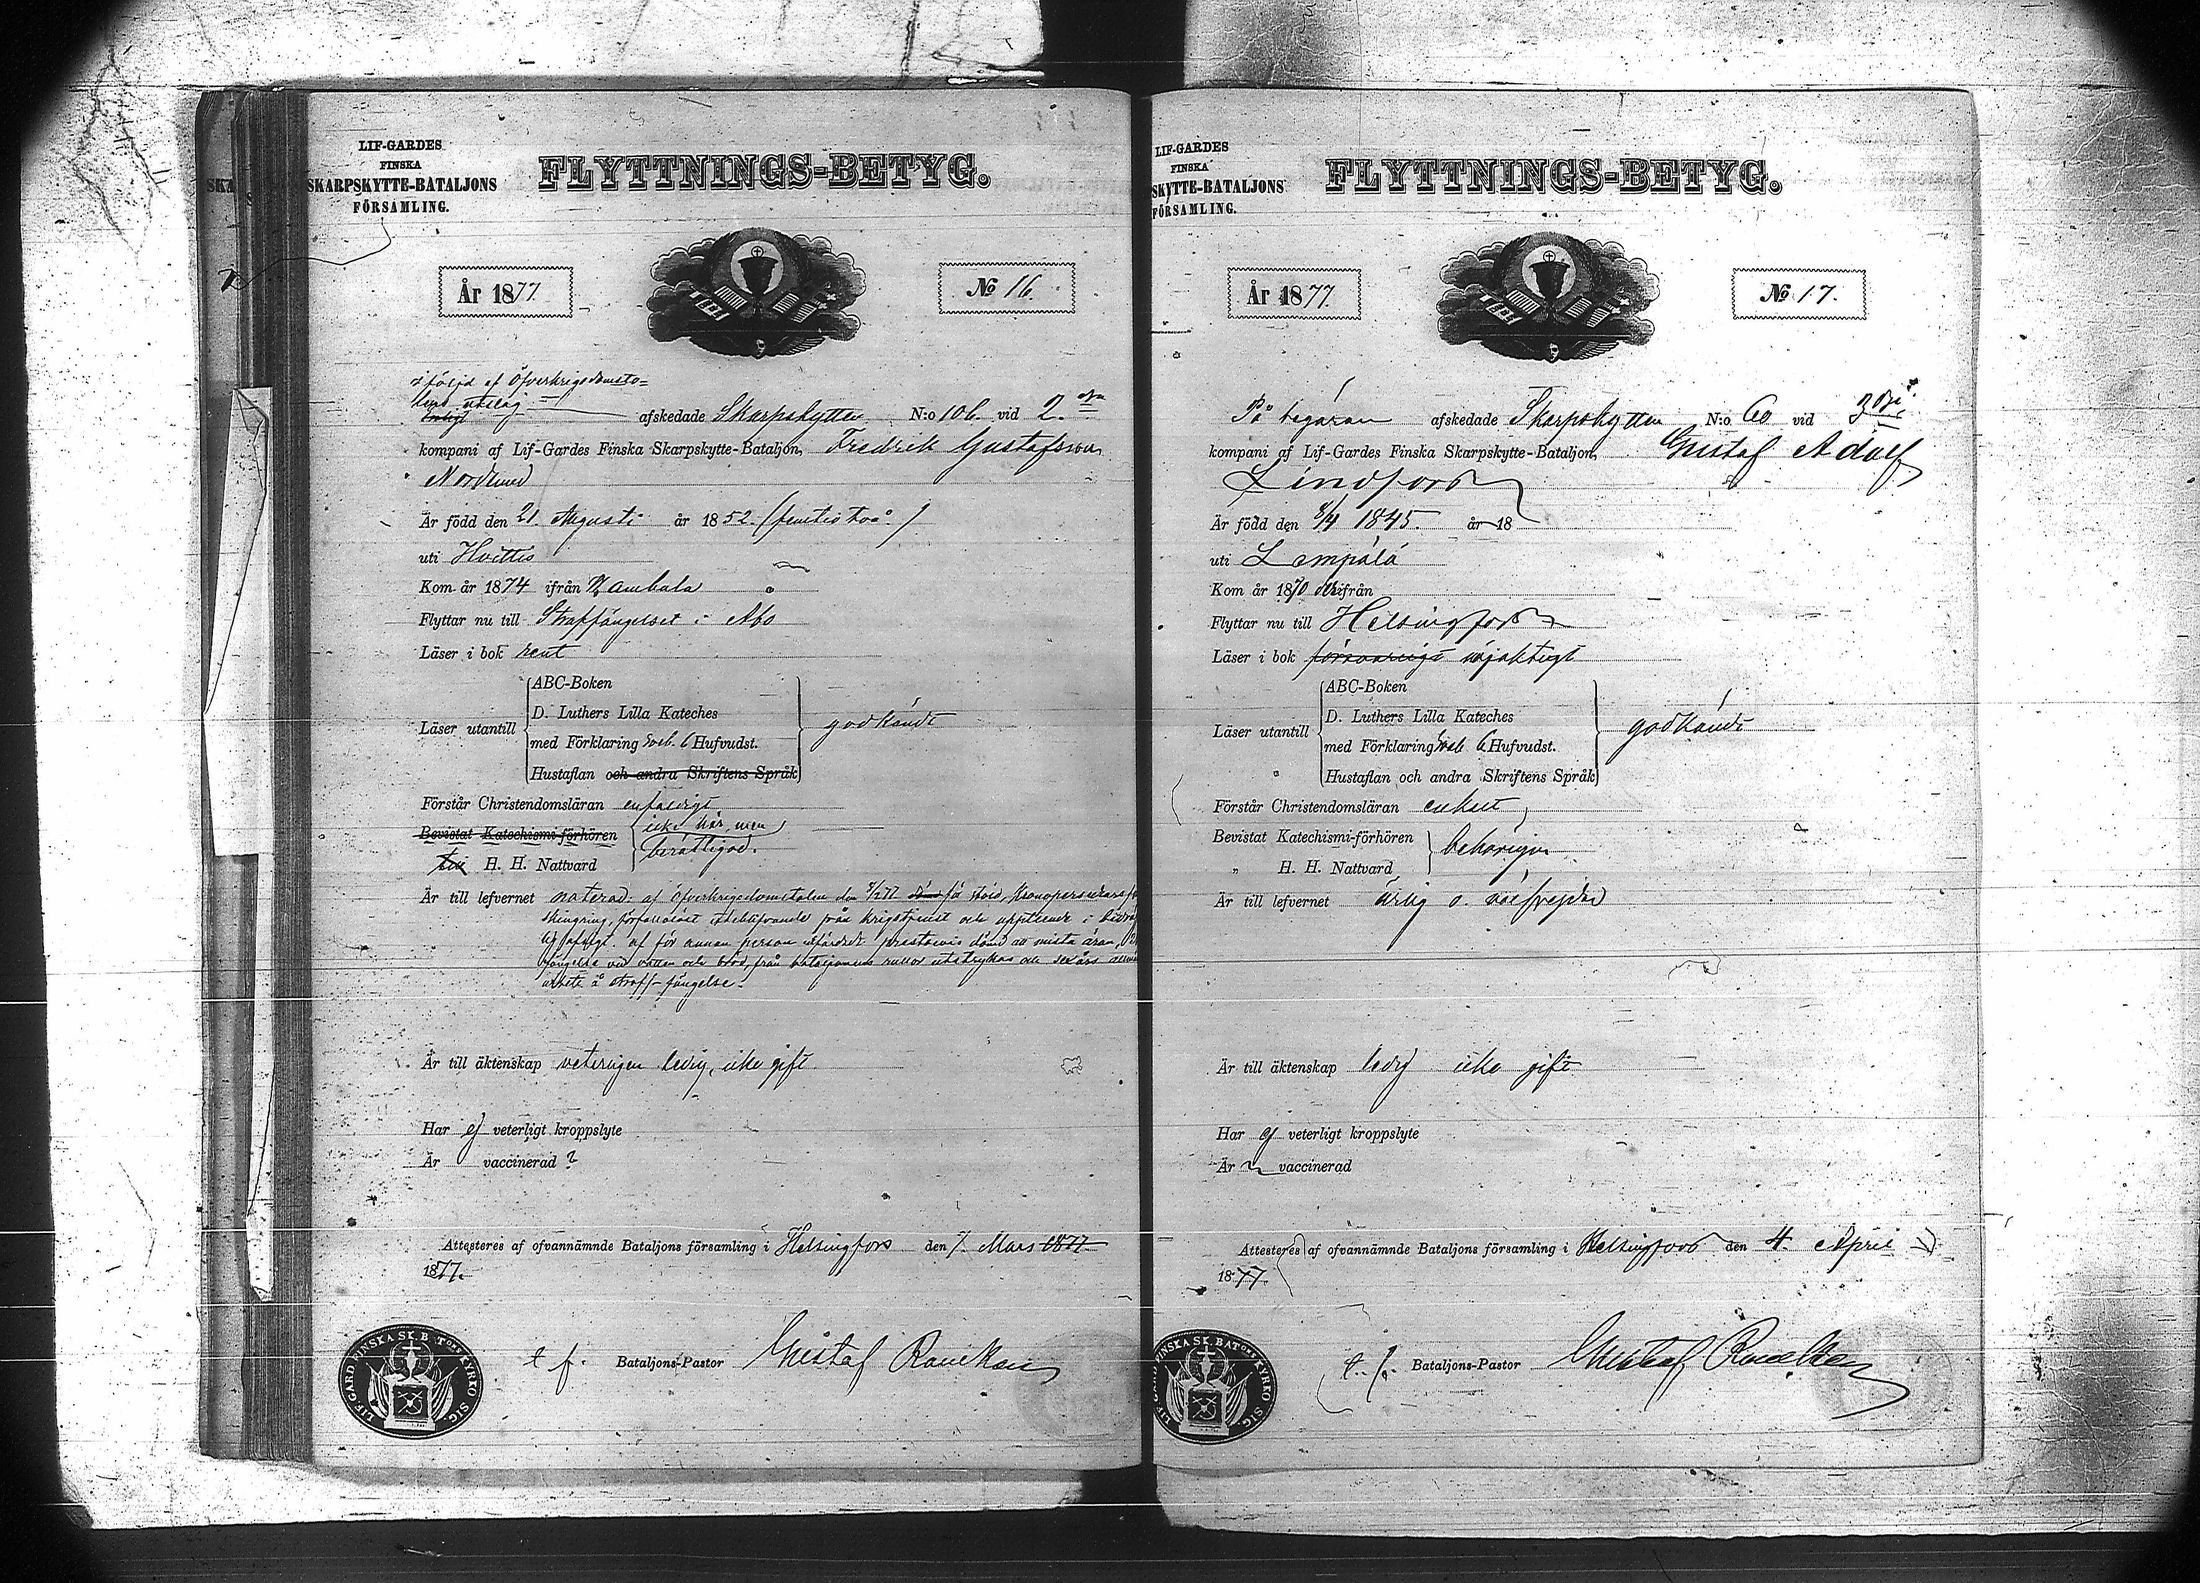 LIF-GARDES
FINSKA
SKARPSKYTTE-BATALJONS
FÖRSAMLING.
FLYTTNINGS-BETYG.
År 1877.
No 16.
i följd af Öfverkrigsdomsto=
lens utslag
afskedade Skarpskytten N:o 106. vid 2.dra
kompani af Lif-Gardes Finska Skarpskytte-Bataljon, Fredrik Gustafsson
Nordlund
Är född den 21. Augusti år 1852. (femtio två.)
uti Hvittis
Kom år 1874 ifrån
Flyttar nu till Straffängelset i Åbo
Läser i bok rent
Läser utantill
ABC-Boken
D. Luthers Lilla Kateches
med Förklaring Sveb. 6 Hufvudst.
Hustaflan och andra Skriftens Språk
godkändt
Förstår Christendomsläran enfaldigt
Bevistat Katechismi-förhören
icke här, men
till H. H. Nattvard
berättigad.
Är till lefvernet noterad: af Öfverkrigsdomstolen den 8/2 77 för stöld, Kronopersedlars för
skingring, förfalskadt afskedsprande från krigstjenst och uppträdande i
af för annan person utfärdadt prestbevis dömd att mista äran,
fängelse vid vatten och bröd, från bataljonens rullor utstrykas och sex års allmänt
arbete å straff-fängelse.
Är till äktenskap veterligen ledig, icke gift
Har ej veterligt kroppslyte
Är vaccinerad ?
Attesteres af ofvannämnde Bataljons församling i Helsingfors den 7. Mars 1877.
1877.
t. f. Bataljons-Pastor Gustaf Rancken
LIF-GARD. FINSKA SK. BAT:ONS KYRKO SIG.
LIF-GARDES
FINSKA
SKYTTE-BATALJONS
FÖRSAMLING.
FLYTTNINGS-BETYG.
År 1877.
No 17.
På begäran afskedade Skarpskytten N:o 60 vid 3dje
kompani af Lif-Gardes Finska Skarpskytte-Bataljon, Gustaf Adolf
Lindfors
Är född den 8/4 1845. år 18
uti Lempälä
Kom år 1870 ifrån
Flyttar nu till Helsingfors
Läser i bok försvarligt nöjaktigt
Läser utantill
ABC-Boken
D. Luthers Lilla Kateches
med Förklaring Sveb. 6. Hufvudst.
Hustaflan och andra Skriftens Språk
godkändt
Förstår Christendomsläran enkelt
Bevistat Katechismi-förhören
„ H. H. Nattvard
behörigen
Är till lefvernet ärlig o. välfrejdad
Är till äktenskap ledig icke gift
Har ej veterligt kroppslyte
Är vaccinerad
Attesteres af ofvannämnde Bataljons församling i Helsingfors den 4. April
1877.
t. f. Bataljons-Pastor Gustaf Rancken
LIF-GARD. FINSKA SK. BAT:ONS KYRKO SIG.